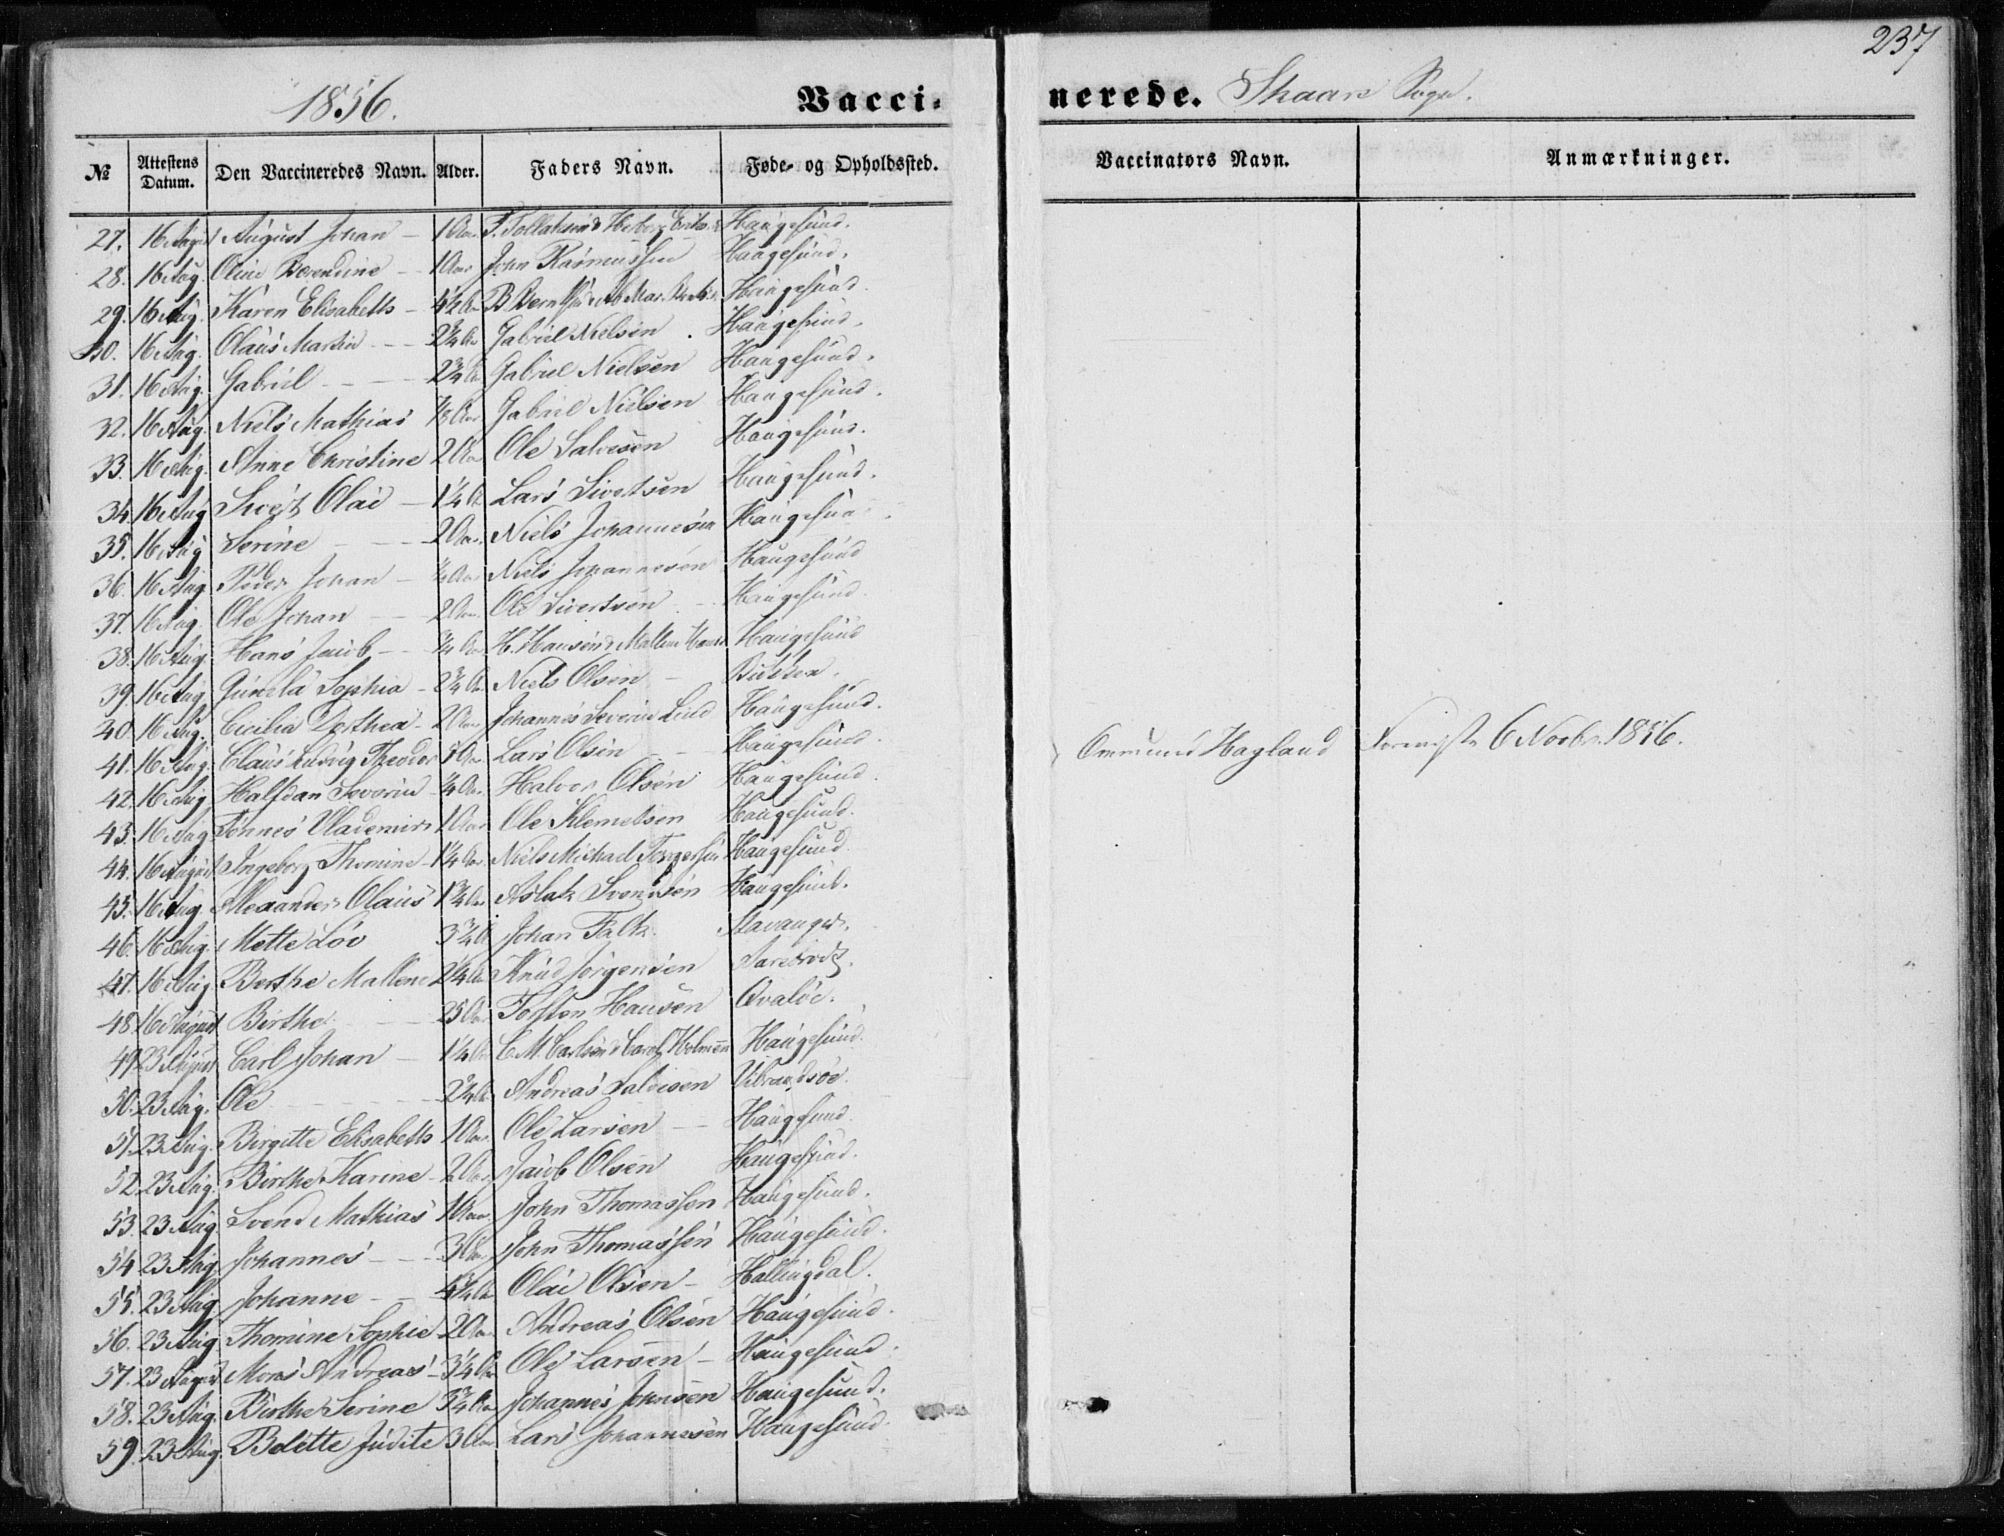 237
1856.
Vaccinerede. Skaare Sogn.
№ Attestens Datum. Den Vaccineredes Navn. Alder. Faders Navn. Føde- og Opholdssted. Vaccinators Navn. Anmærkninger.
27. 16 August August Johan – 1 Aar Haugesund.
28. 16 Aug. Oline Berendine – 1 Aar John Rasmussen Haugesund.
29. 16 Aug. Karen Elisabeth – 4½ Aar Haugesund.
30. 16 Aug. Olaus Martin – Gabriel Nielsen Haugesund.
31. 16 Aug. Gabriel – 2¾ Aar Gabriel Nielsen Haugesund.
32. 16 Aug. Niels Mathias Gabriel Nielsen Haugesund.
33. 16 Aug. Anne Christine 2 Aar Ole Salvesen Haugesund.
34. 16 Aug Sivert Olai – 1¼ A Lars Sivertsen Haugesund.
35. 16 Aug Serine – 2 Aar Niels Johannesen Haugesund.
36. 16 Aug Peder Johan – Niels Johannesen Haugesund
37. 16 Aug. Ole Johan – 2 Aar Ole Sivertsen – Haugesund
38. 16 Aug. Hans Jacob – ¾ Aar H. Hansen & Malene Haugesund
39. 16 Aug. Gunela Sophia – 2¾ Aar Niels Olsen –
40. 16 Aug. Cicilia Dorthea – 2 Aar Johannes Severin Lind Haugesund.
41. 16 Aug. Claus Ludvig Theodor Lars Olsen – Haugesund. Ommund Hagland Foreviste 6 Novbr. 1856.
42. 16 Aug Halfdan Severin – Halvor Olsen Haugesund.
43. 16 Aug Tønnes Vlademir 1 Aar Ole Klemetsen Haugesund.
44. 16 August Ingeborg Thomine – 1¼ Aar Niels Michael Torgersen Haugesund.
45. 16 Aug Alexander Olaus 1¾ Aar Aslak Svendsen Haugesund.
46. 16 Aug. Mette Lov 3¾ A Johan Falk. Stavanger.
47. 16 Aug Berthe Mallene 2¼ Aar Knud Jørgensen
48. 16 August Birthe – 25 Aar Torsten Hansen Qvaløe.
49. 23 August Carl Johan – 1¼ Aar C. M. Carlsen & Haugesund.
50. 23 Aug. Ole – 2¾ Aar Andreas Salvesen Vibrandsøe.
51. 23 Aug. Birgitte Elisabeth 1 Aar Ole Larsen – Haugesund.
52. 23 Aug. Birthe Karine – 2 Aar Jacob Olsen Haugesund.
53. 23 Aug Svend Mathias 1 Aar John Thomassen Haugesund.
54. 23 Aug. Johannes – 3 Aar John Thomassen Haugesund.
55. 23 Aug Johanne – 4½ Aar Olai Olsen – Hallingdal.
56. 23 Aug Thomine Sophie 2 Aar Andreas Olsen Haugesund.
57. 23 August Mons Andreas – 3¼ Aar Ole Larsen – Haugesund.
58. 23 Aug. Birthe Serine 3¾ Aar Johannes Johnsen Haugesund.
59. 23 Aug. Bolette Judite 3 Aar Lars Johannesen Haugesund.